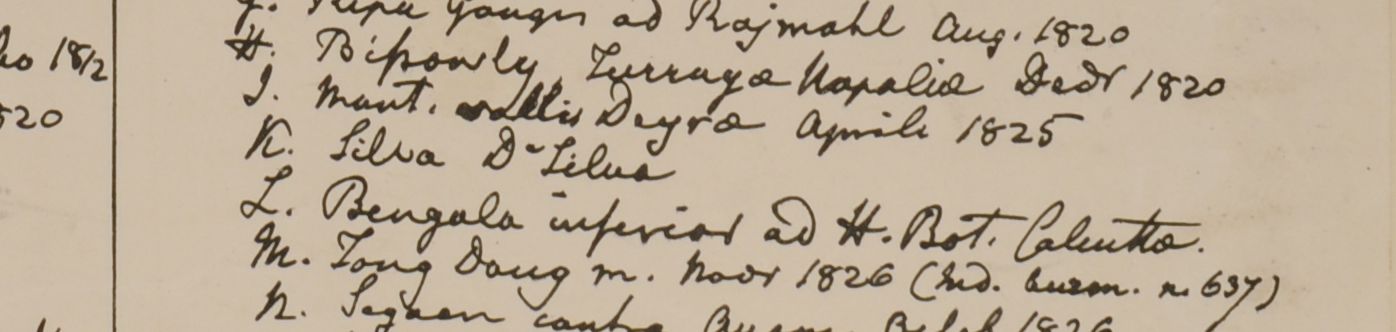 ho 1812
820
G. Ripa Gangis ad Rajmahl Aug. 1820
H. Bissowly, Turraya Napaliæ Decr 1820
I. Mont. vallis Deyræ Aprili 1825
K. Silva D Silva
L. Bengala inferior ad H. Bot. Calcutta.
M. Tong Dong m. Novr 1826 (hd. burm. n. 637)
N. Segaen contra 1826